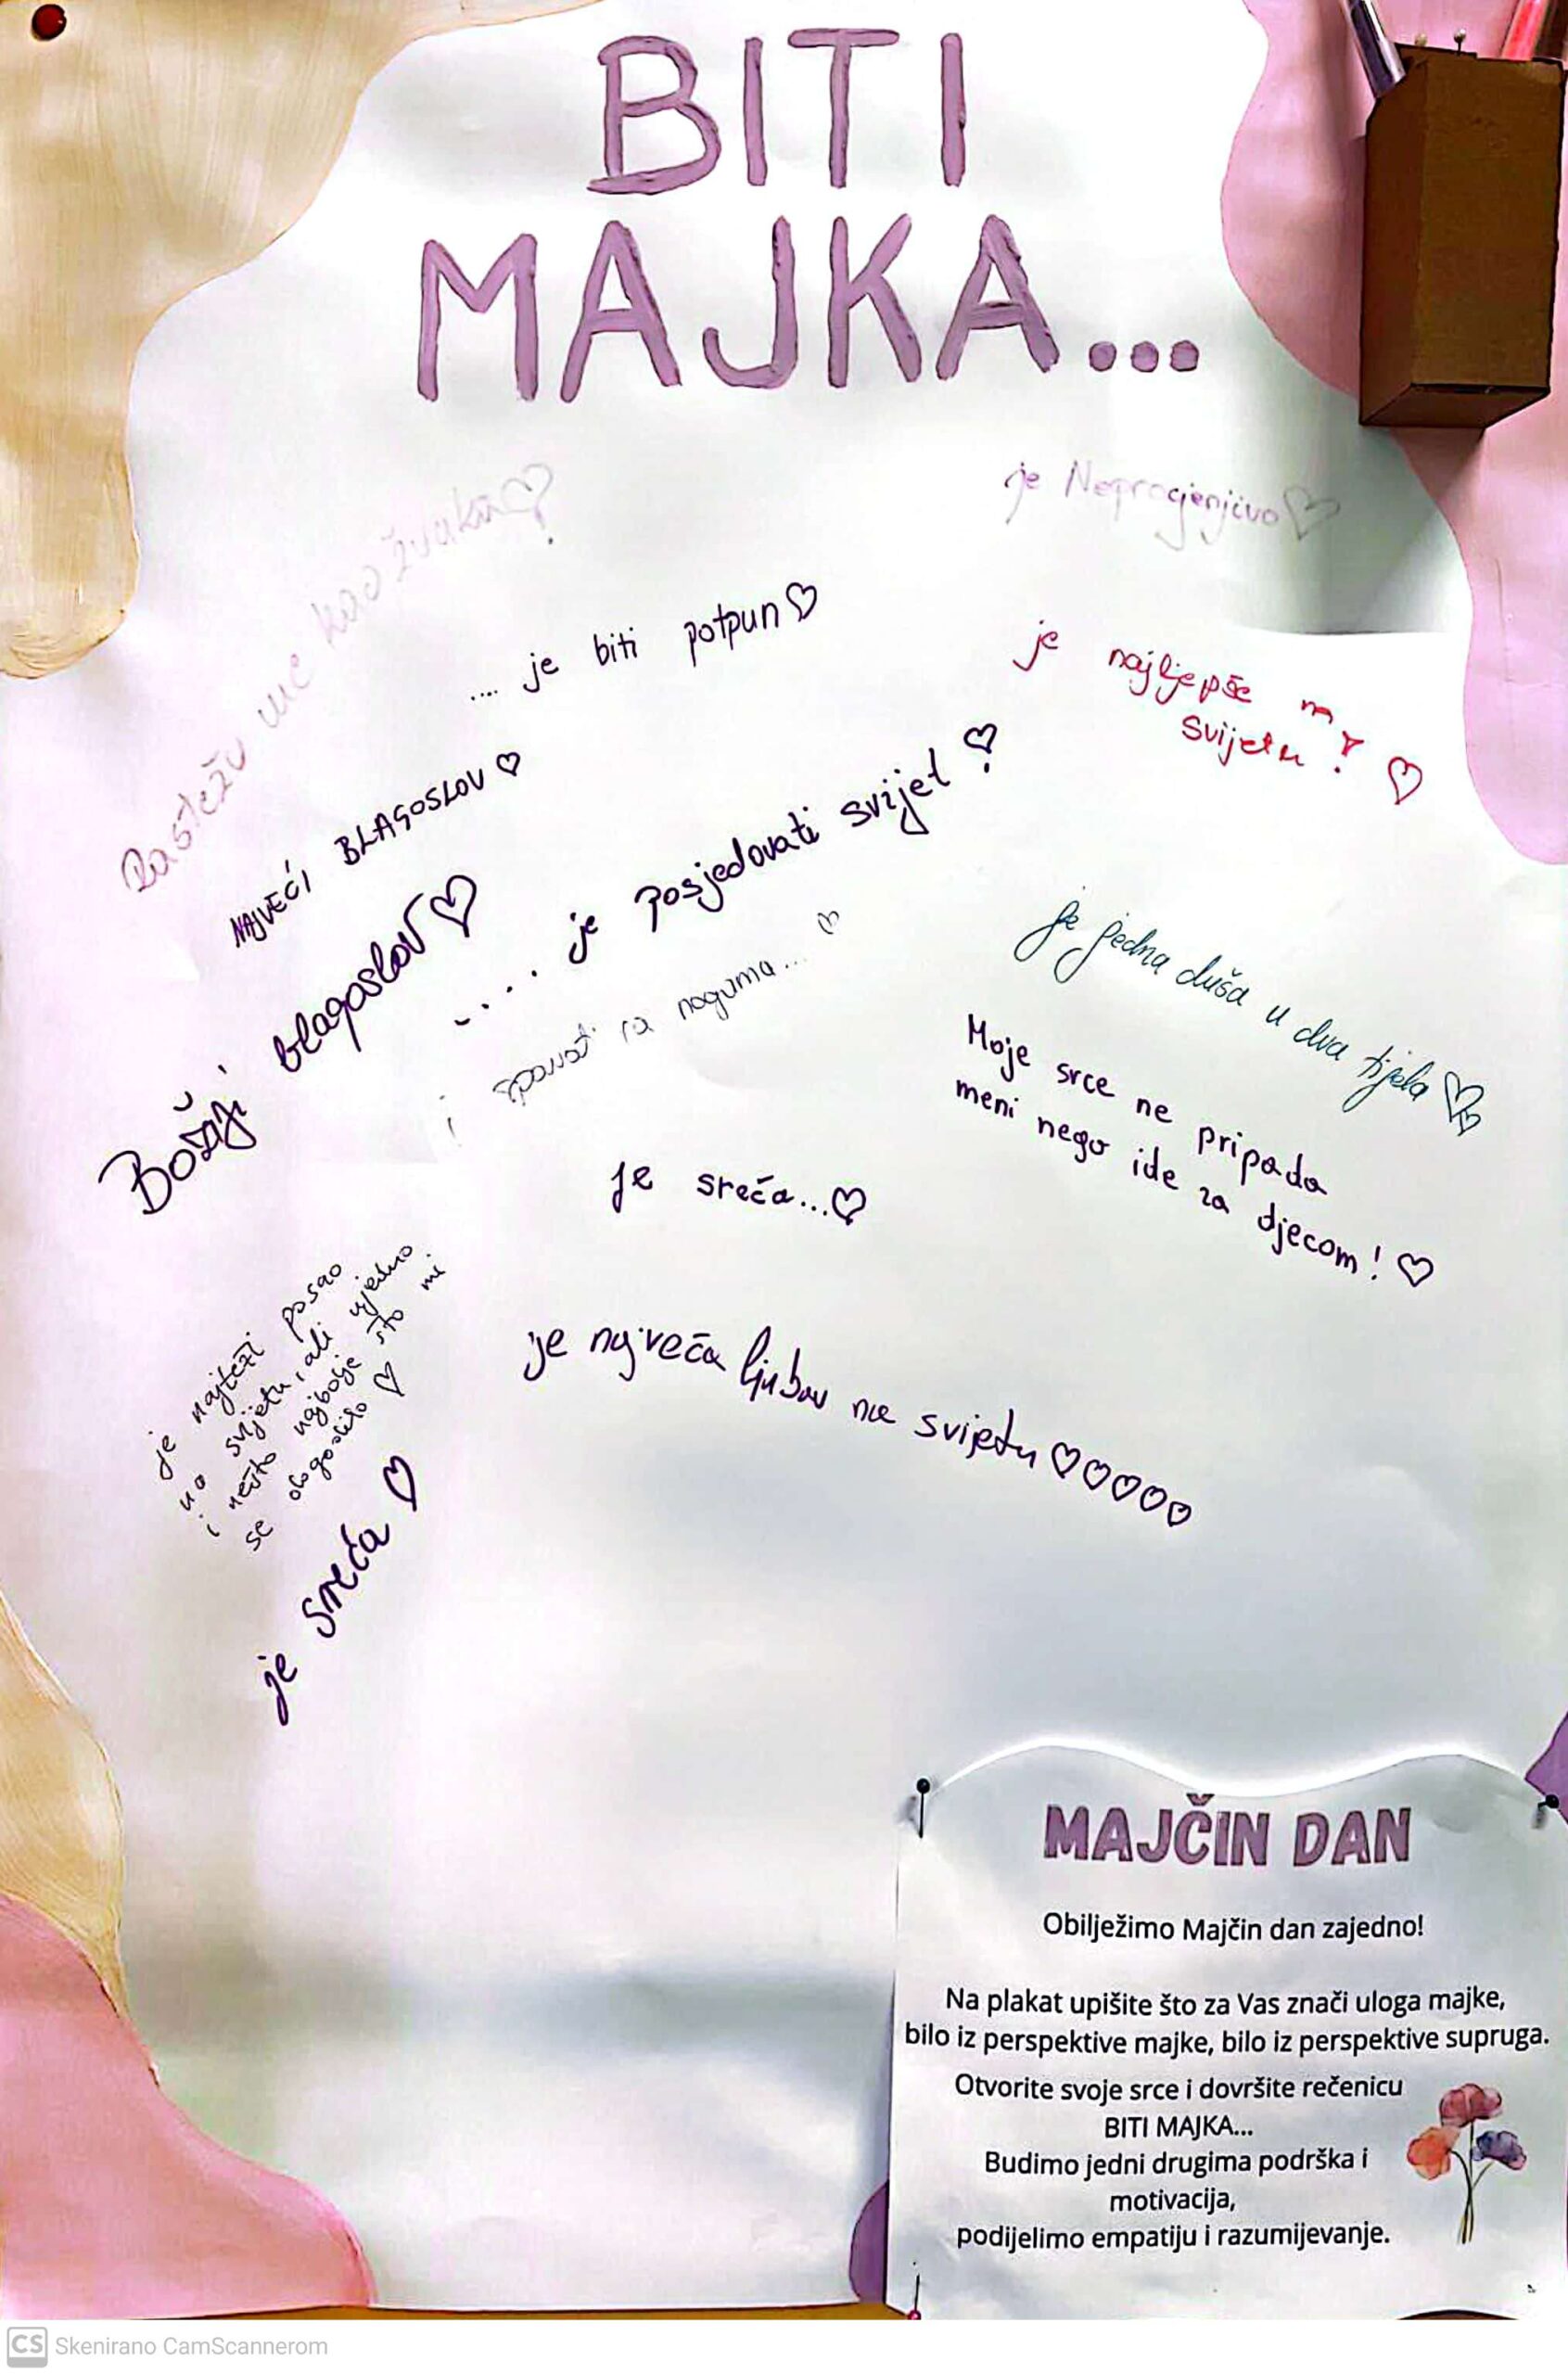 BITI
MAJKA...
Rastežu me kao žvaku
je Neprocjenjivo
.... je biti potpun
je najljepše na
svijetu!
NAJVEĆI BLAGOSLOV
..... je posjedovati svijet
Božiji blagoslov
i spavati sa nogama...
je jedna duša u dva tijela
Moje srce ne pripada
meni nego ide za djecom!
je sreća...
je najteži posao
na svijetu, ali ujedno
i nešto najbolje što mi
se dogodilo
je največa ljubav na svijetu
je sreća
MAJČIN DAN
Obilježimo Majčin dan zajedno!
Na plakat upišite što za Vas znači uloga majke,
bilo iz perspektive majke, bilo iz perspektive supruga.
Otvorite svoje srce i dovršite rečenicu
BITI MAJKA...
Budimo jedni drugima podrška i
motivacija,
podijelimo empatiju i razumijevanje.
CS Skenirano CamScannerom